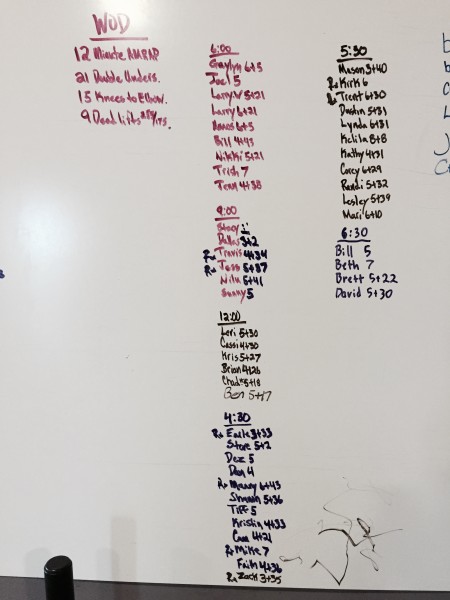 WOD
12 Minute AMRAP
21 Double Unders.
15 Knees to Elbow.
9 Deadlifts
6:00
Graylyn 6+5
Joel 5
Larry W 5+21
Larry 6+21
6+5
Bill 4+43
Nikki 5+21
Trish 7
Jenn 4+38
9:00
Stacy
Dallas 3+2
Rx Travis 4+34
Rx Jess 5+37
5+41
Sunny 5
12:00
Leri 5+30
Cassi 4+30
Kris 5+27
Brian 4+26
Chad 5+18
Ben 5+17
4:30
Rx Earle 3+33
Steve 5+2
Dez 5
Dan 4
Rx Manny 6+43
Shannon 5+36
Tiff 5
Kristin 4+33
Cam 4+21
Rx Mike 7
Faith 4+36
Rx Zack 3+35
5:30
Mason 3+40
Rx Kirk 6
Rx Trent 6+30
Dustin 5+31
Lynda 6+31
Kalila 8+8
Kathy 4+31
Corey 6+29
Randi 5+32
Lesley 5+39
Mari 6+10
6:30
Bill 5
Beth 7
Brett 5+22
David 5+30